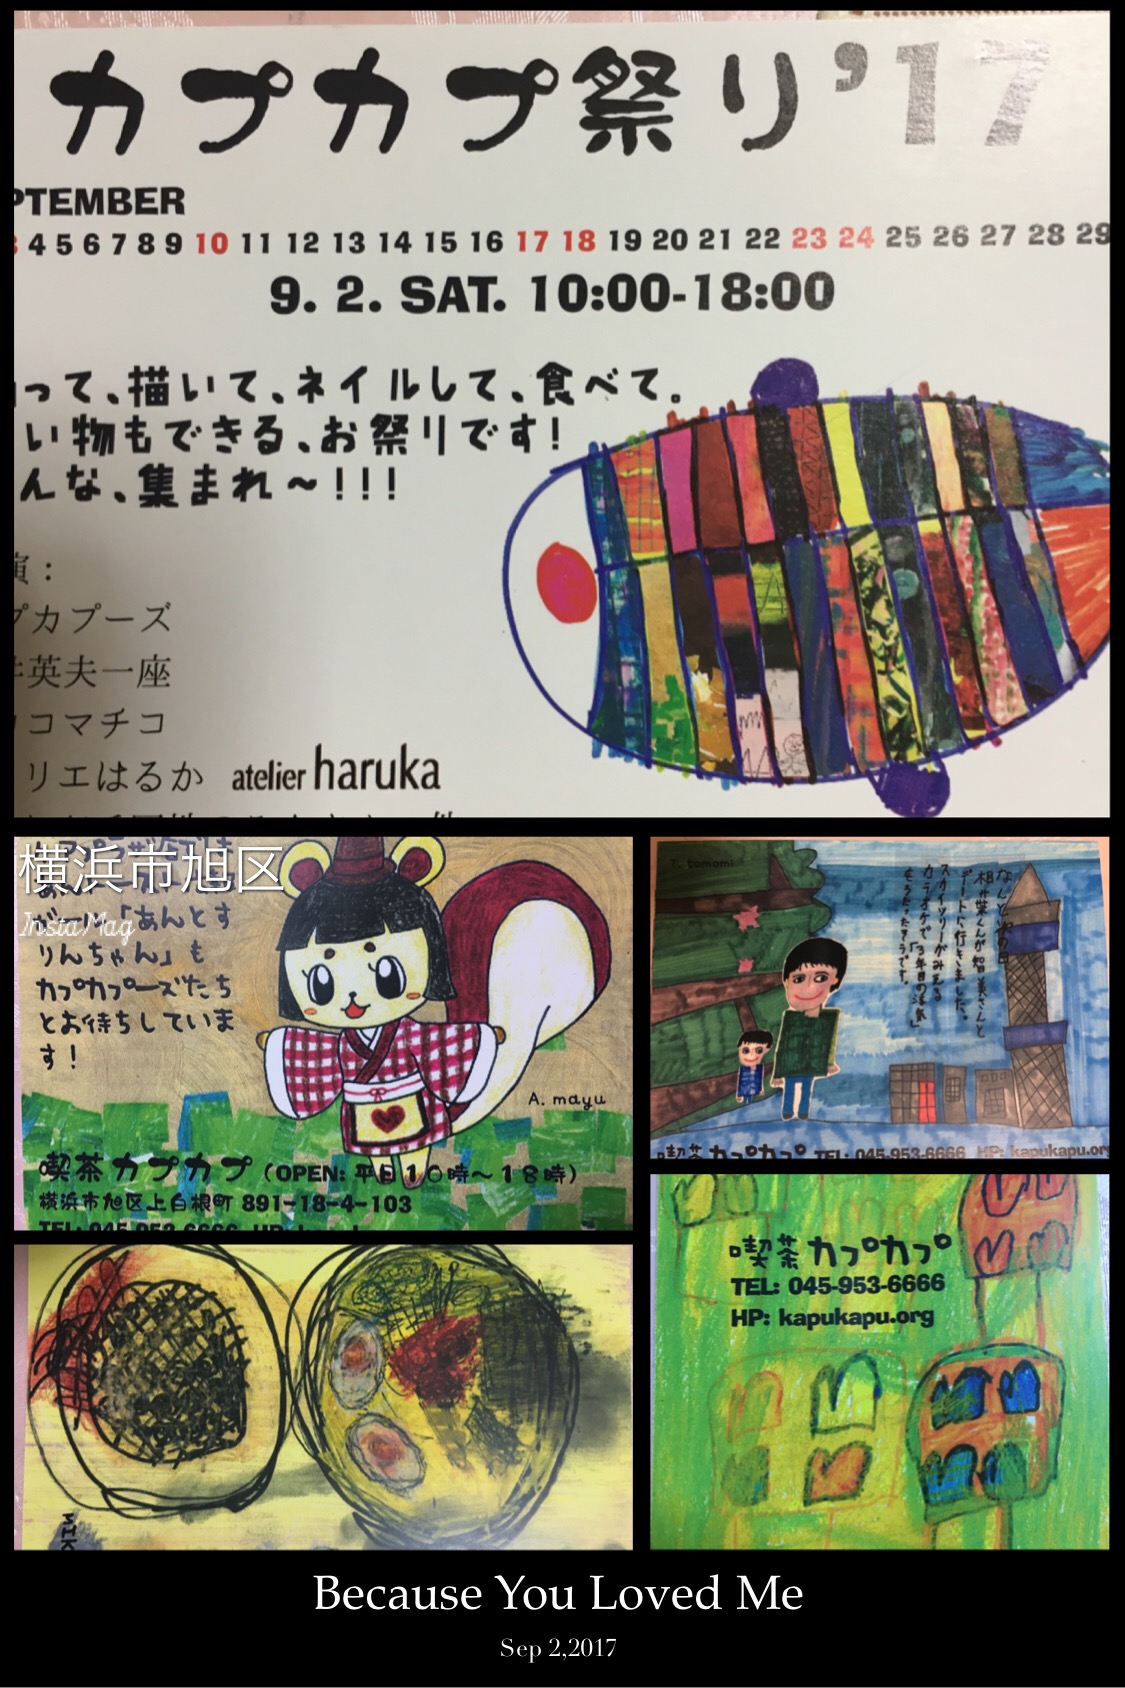 カプカプ祭り'17
PTEMBER
4 5 6 7 8 9 10 11 12 13 14 15 16 17 18 19 20 21 22 23 24 25 26 27 28 29
9. 2. SAT. 10:00-18:00
って、描いて、ネイルして、食べて。
い物もできる、お祭りです!
んな、集まれ~!!!
演:
プカプーズ
井英夫一座
コマチコ
リエはるか atelier haruka
横浜市旭区
InstaMag
「あんとす
りんちゃん」も
カプカプーズたち
とお待ちしていま
す!
A. mayu
喫茶カプカプ (OPEN: 平日10時~18時)
横浜市旭区上白根町 891-18-4-103
TEL: 045-953-6666
T. tomomi
相葉くんが智美さんと
デートに行きました。
スカイツリーがみえる
カラオケで「3年目の浮気」
喫茶カプカプ TEL: 045-953-6666 HP: kapukapu.org
喫茶カプカプ
TEL: 045-953-6666
HP: kapukapu.org
MIK
Because You Loved Me
Sep 2,2017